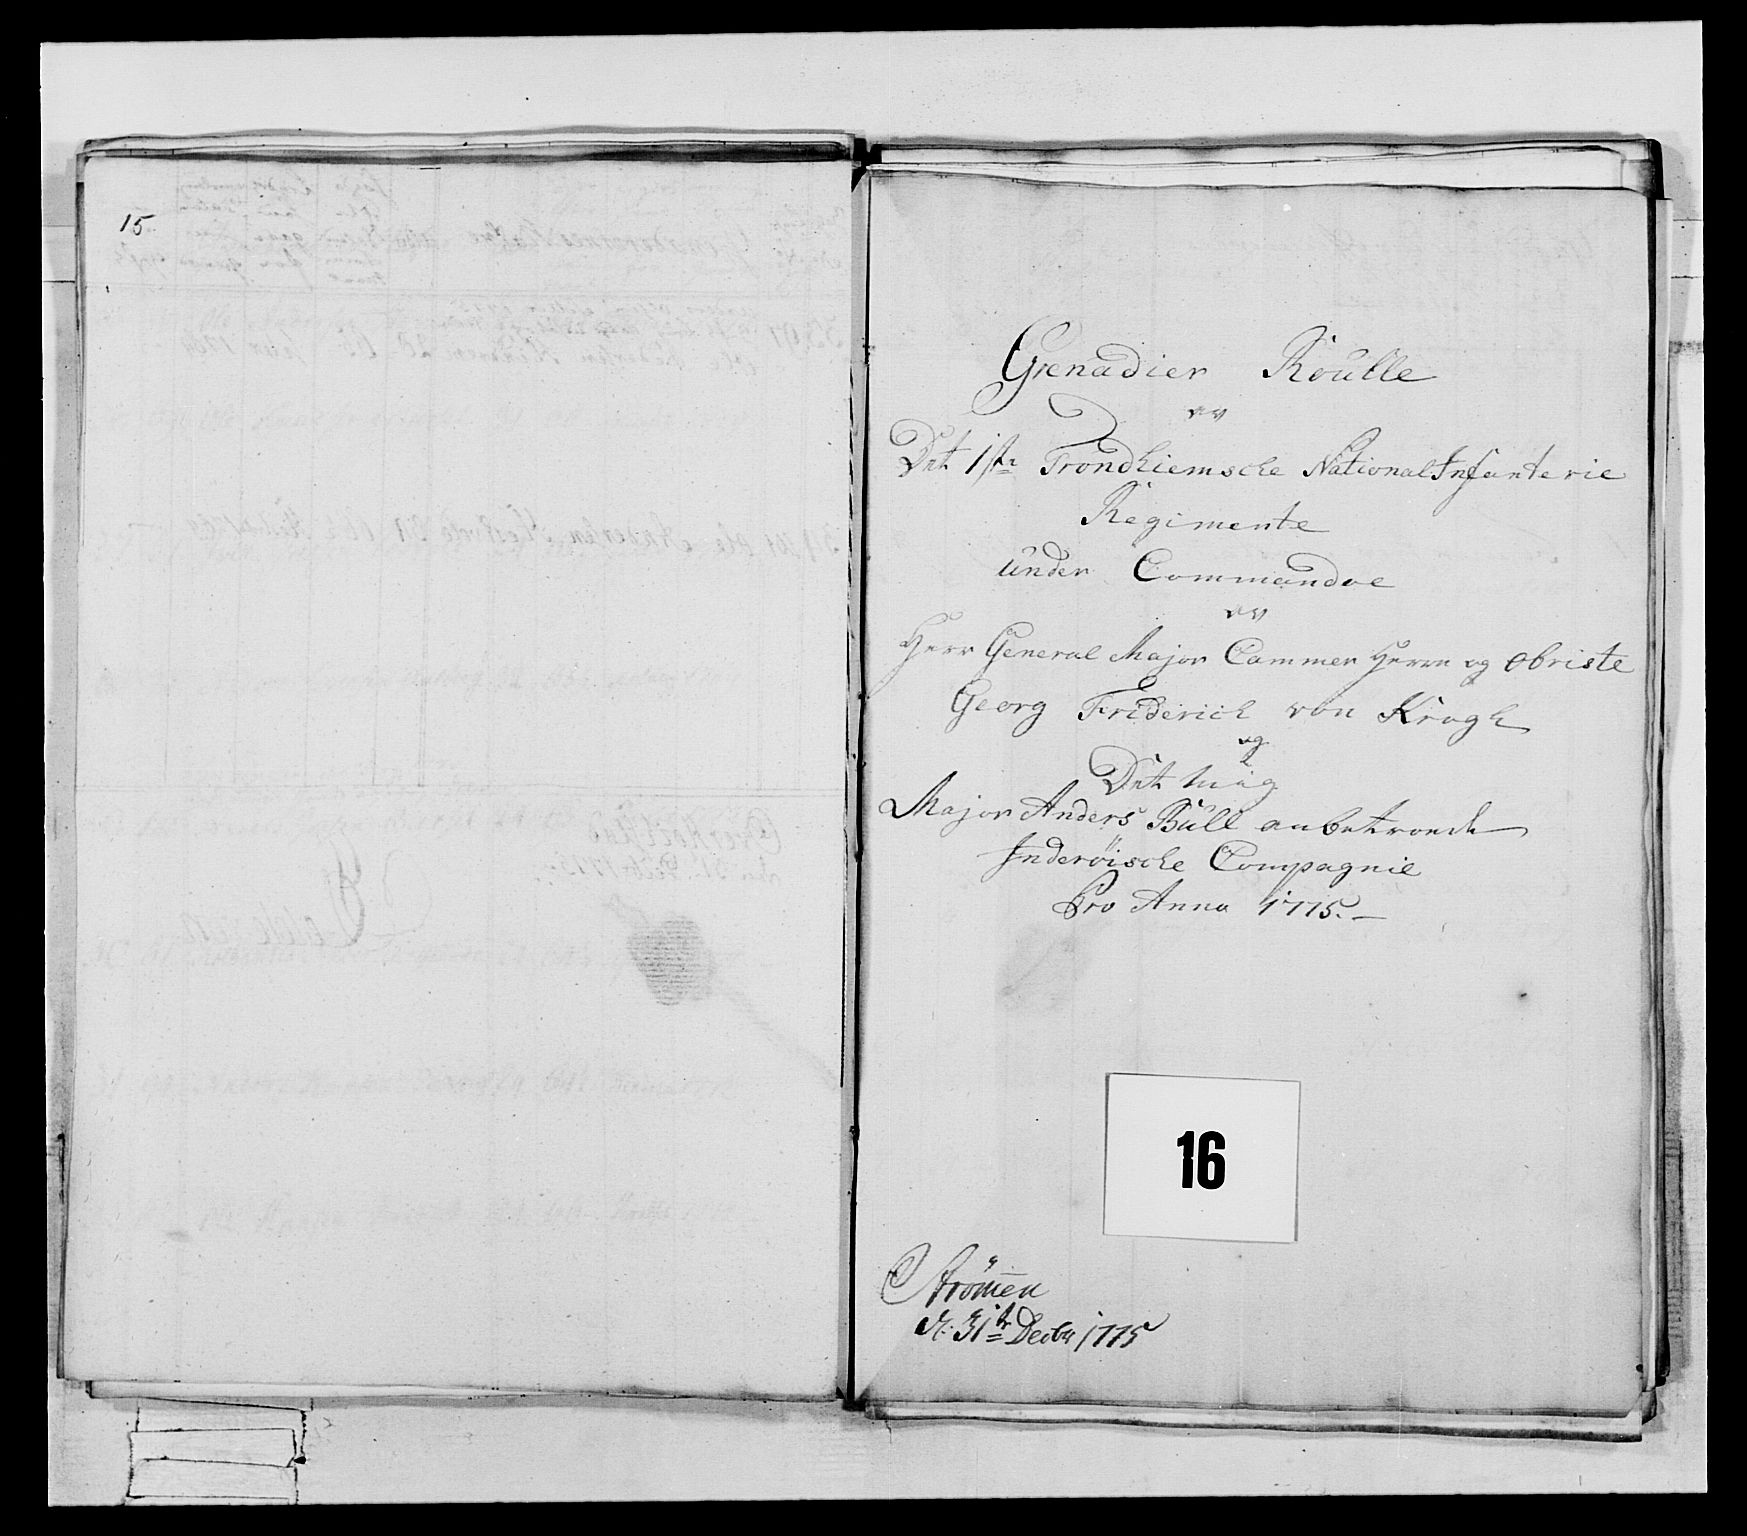 15.
Grenadier Roulle
av
Det 1ste Trondhiemsche National Infanterie
Regimente
under Commandoe
av
Herr General Major Cammer Herre og Obriste
Georg Friderich von Krogh
og
Det mig
Major Anders Büll anbetroede
Inderöische Compagnie
Pro Anno 1775.
16
Strömen
d. 31te Decbr 1775